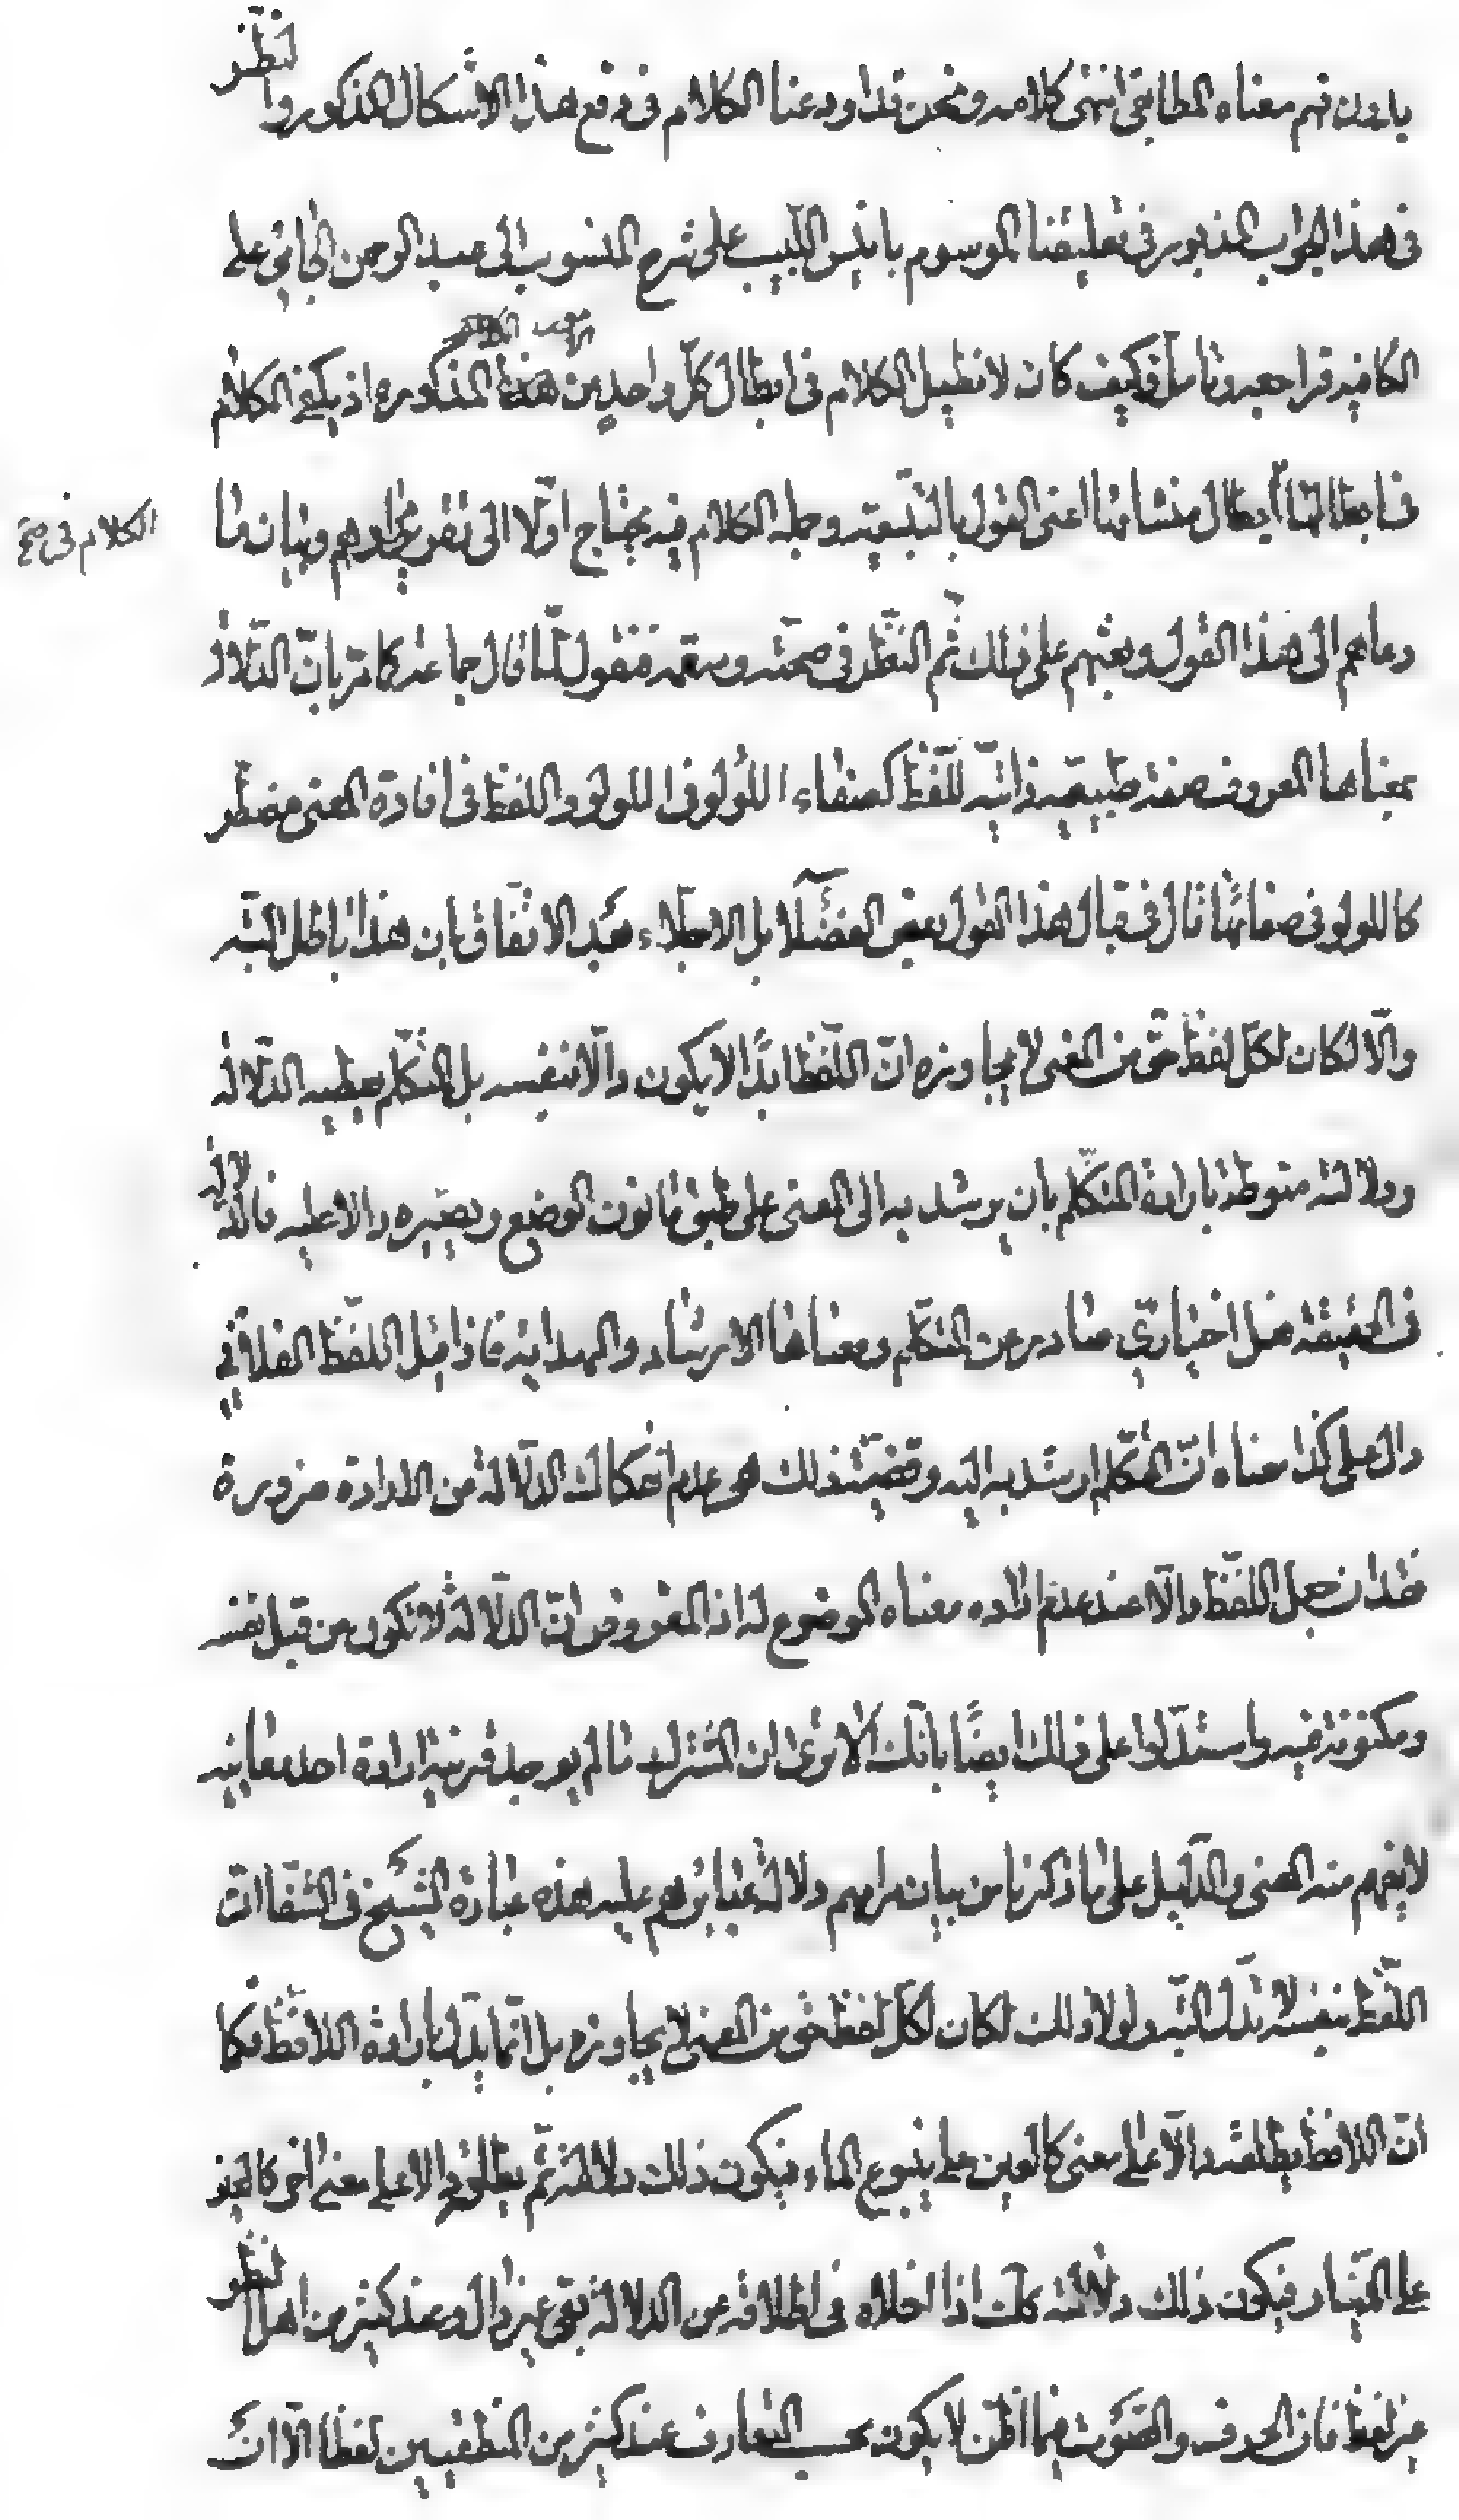 بدون فهم معناه المطابقي انتهى كلامه ونحن قد اودعنا الكلام في دفع هذا الاشكال المذكور والنظر
في هذا الجواب المذبور في تعليقنا الموسوم بانيس اللبيب على شرح المنسوب الى عبد الرحمن الجامي على
الكافيه فراجعه وتأمل وكيف كان لا نطيل الكلام في ابطال كل واحد من هذه المذكوره اذ يكفي الكلام
في ابطالها ابطال منشائها اعني القول بالتبعيّة وجملة الكلام فيه يحتاج اولا الى تقرير مرادهم وبيان ما
الكلام في صح
دعاهم الى هذا القول وبعثهم على ذلك ثم النظر في صحته وسقمه فنقول لما قال جماعة كما مر بانّ الدلالة
بمعناها المعروف صفة طبيعية ذاتية للّفظ كصفاء اللؤلؤ في اللؤلؤ واللفظ في افادة المعنى مضطر
كاللؤلؤ في صفائها قال في قبال هذا القول بعض الفضلاء بل الاجلاء بعد الاتفاق بان هذا باطل البتّه
والّا لكان لكل لفظ حق من المعنى لا يجاوزه انّ اللّفظ ابدًا لا يكون دالّا بنفسه بل المتكلّم يعطيه الدّلالة
ودلالته منوطة بارادة المتكلّم بان يرشد به الى المعنى على طبق قانون الوضع ويصيّره دالا عليه فالدلالة
في الحقيقة فعل اختياري صادر عن المتكلّم ومعناها الارشاد والهداية فاذا قيل اللفظ الفلاني
دال على كذا معناه انّ المتكلم ارشد به اليه وقضيّة ذلك هي عدم انفكاك الدلالة من الارادة ضرورة
فقدان جعل اللفظ دالّا عند عدم ارادة معناه الموضوع له اذ المفروض انّ الدلالة لا تكون من قبل نفسه
ومكنونة فيه واستدلّوا على ذلك ايضًا بانّك الا ترى ان المشترك ما لم يوجد قرينة ارادة احد معانيه
لا يفهم منه المعنى والدّليل على ما ذكرنا من بيان مرامهم دلالة عبائرهم عليه هذه عبارة الشيخ في الشفا انّ
اللّفظ بنفسه لا يدلّ البتّه ولولا ذلك لكان لكلّ لفظ حق من المعنى لا يجاوزه بل انّما يدلّ بارادة اللافظ فكما
انّ اللافظ يطلقه دالّا على معنى كالعين على ينبوع الماء فيكون ذلك دلالته ثم يطلقه دالا على معنى اخر كالعين
على الدينار فيكون ذلك دلالته كك اذا اخلاه في اطلاقه عن الدلالة بقي غير دال وعند كثير من اهل النظر
غير لفظ فان الحرف والصّوت فيما اظن لا يكون بحسب التعارف عند كثير من المنطقيين لفظا الّا انّ